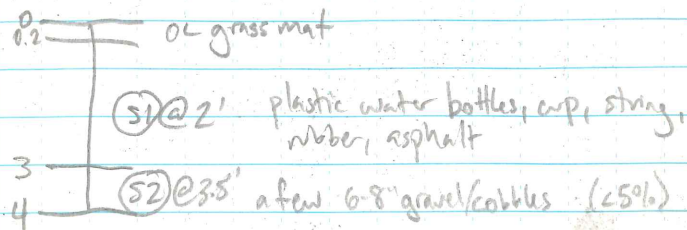 0
0.2 OL grass mat
S1 @ 2' plastic water bottles, cup, string,
rubber, asphalt
3
S2 @ 3.5' a few 6-8" gravel/cobbles (<5%)
4